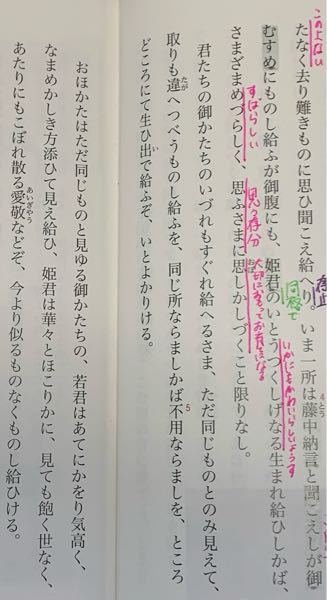 この上ない
たなく去り難きものに思ひ聞こえ給へり。いま一所は藤中納言と聞こえしが御
むすめにものし給ふが御腹にも、姫君のいとうつくしげなる生まれ給ひしかば、
いかにもかわいらしいようす
さまざまめづらしく、思ふさまに思しかしづくこと限りなし。
すばらしい
思う存分
君たちの御かたちのいづれもすぐれ給へるさま、ただ同じものとのみ見えて、
取りも違へつべうものし給ふを、同じ所ならましかば不用ならましを、ところ
5
どころにて生ひ出で給ふぞ、いとよかりける。
おほかたはただ同じものと見ゆる御かたちの、若君はあてにかをり気高く、
なまめかしき方添ひて見え給ひ、姫君は華々とほこりかに、見ても飽く世なく、
あたりにもこぼれ散る愛敬などぞ、今より似るものなくものし給ひける。